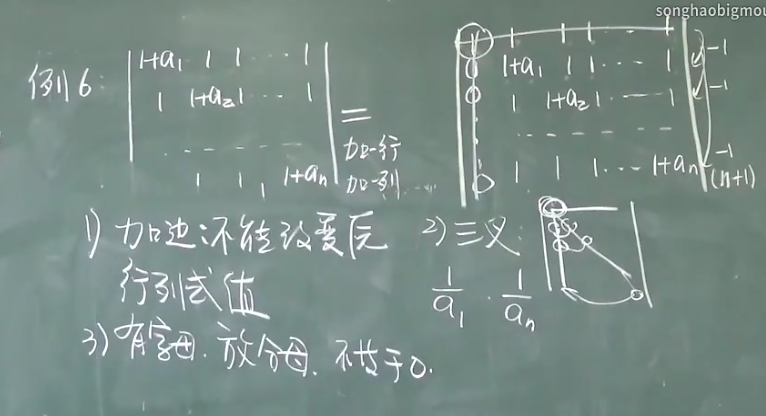 songhaobigmou
例6
1+a₁ 1 1 ··· 1
1 1+a₂ 1 ··· 1
1 1 1 1+aₙ
=
加一行
加一列
1 1 1 1
1+a₁ 1 1 ··· 1
1 1+a₂ 1 ··· 1
1 1 1 ··· 1+aₙ
-1
-1
-1
(n+1)
1) 加边:不能改变原
行列式值
2) 三叉
1/a₁ · 1/aₙ
3) 有字母. 放分母. 不等于0.